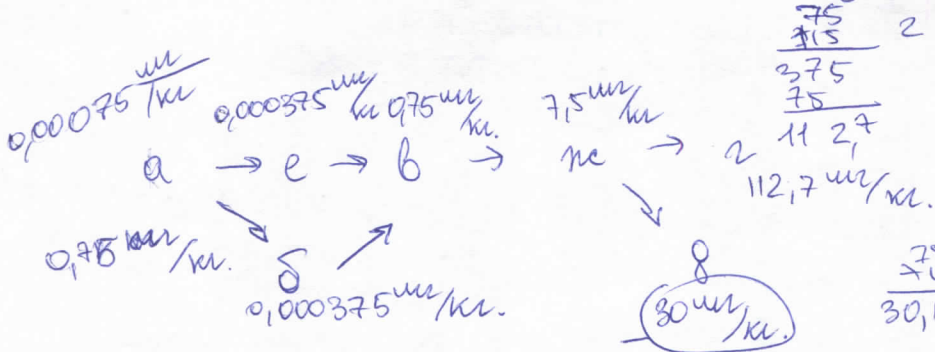 75
15 2
375
75
11 2,7
0,00075 мг/кг 0,000375 мг/кг 0,75 мг/кг. 7,5 мг/кг
а → е → в → ж → г
112,7 мг/кг.
0,75 мг/кг. б д
0,000375 мг/кг. 30 мг/кг.
30,